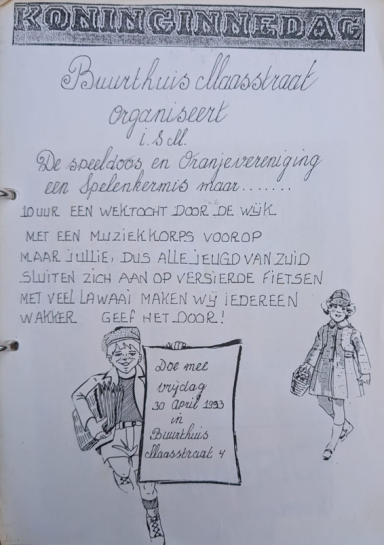 KONINGINNEDAG
Buurthuis Maasstraat
organiseert
i.s.m.
De speeldoos en Oranjevereniging
een Spelenkermis maar.......
10 UUR EEN WEKTOCHT DOOR DE WIJK
MET EEN MUZIEKKORPS VOOROP
MAAR JULLIE, DUS ALLE JEUGD VAN ZUID
SLUITEN ZICH AAN OP VERSIERDE FIETSEN
MET VEEL LAWAAI MAKEN WIJ IEDEREEN
WAKKER GEEF HET DOOR!
Doe mee
vrijdag
30 April 1993
in
Buurthuis
Maasstraat 4